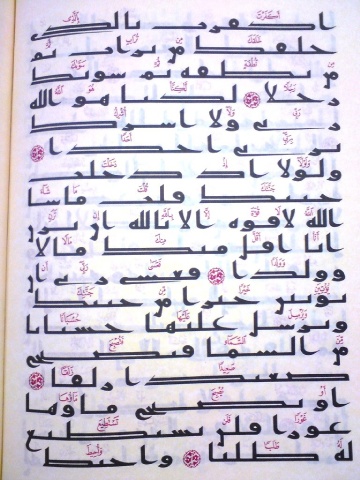 اكفرت بالذي
خلقك من تراب ثم
من نطفة ثم سويك
رجلا ۝ لكنا هو الله
ربي ولا اشرك
بربي احدا ۝
ولولا اذ دخلت
جنتك قلت ما شا
الله لا قوة الا بالله ان ترن
انا اقل منك مالا
وولدا ۝ فعسى ربي ان
يوتين خيرا من جنتك
ويرسل عليها حسبانا
من السما فتصبح
صعيدا زلقا ۝
او يصبح ماوها
غورا فلن تستطيع
له طلبا ۝ واحيط